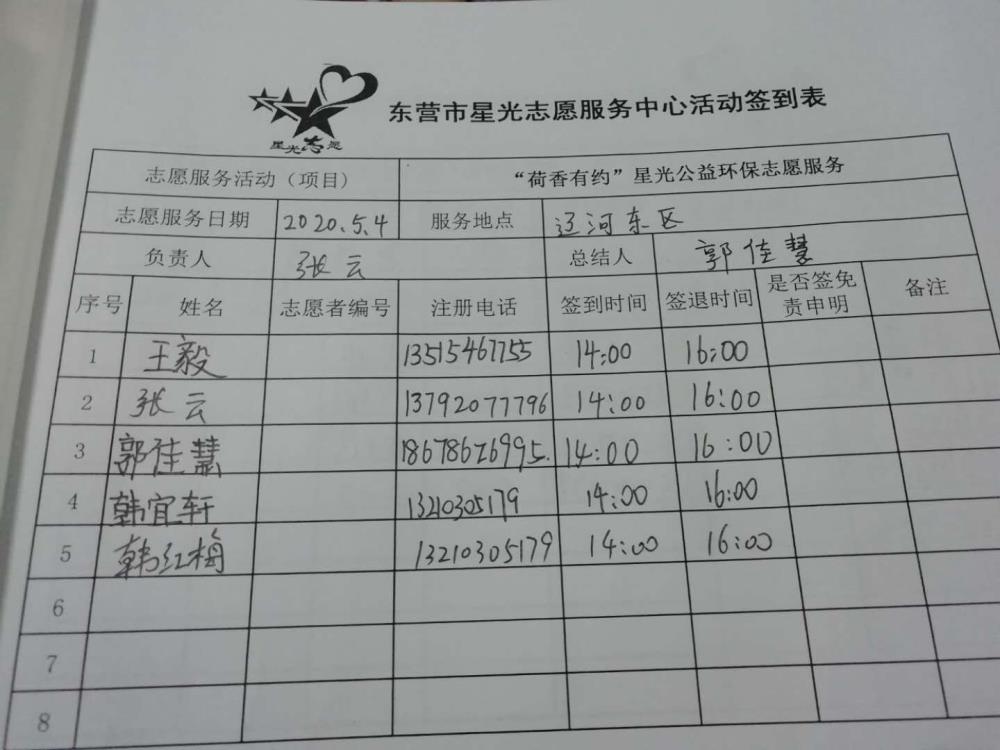 星光志愿
东营市星光志愿服务中心活动签到表
志愿服务活动（项目） “荷香有约”星光公益环保志愿服务
志愿服务日期 2020.5.4 服务地点 辽河东区
负责人 张云 总结人 郭佳慧
序号 姓名 志愿者编号 注册电话 签到时间 签退时间 是否签免责申明 备注
1 王毅 13515467755 14:00 16:00
2 张云 13792077796 14:00 16:00
3 郭佳慧 18678626995. 14:00 16:00
4 韩宜轩 13210305179 14:00 16:00
5 韩红梅 13210305179 14:00 16:00
6
7
8